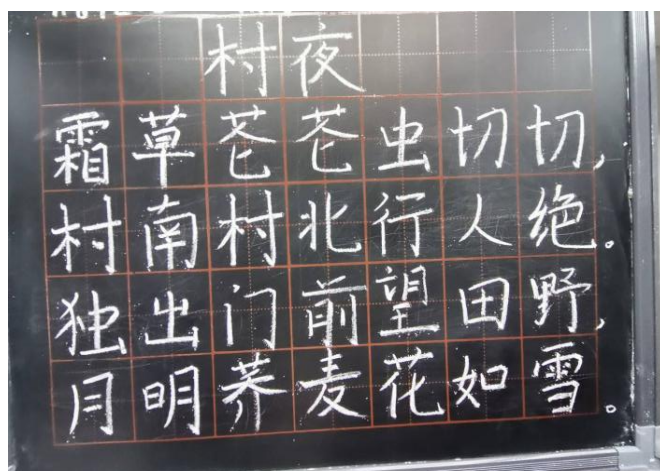 村夜
霜草苍苍虫切切,
村南村北行人绝。
独出门前望田野,
月明荞麦花如雪。